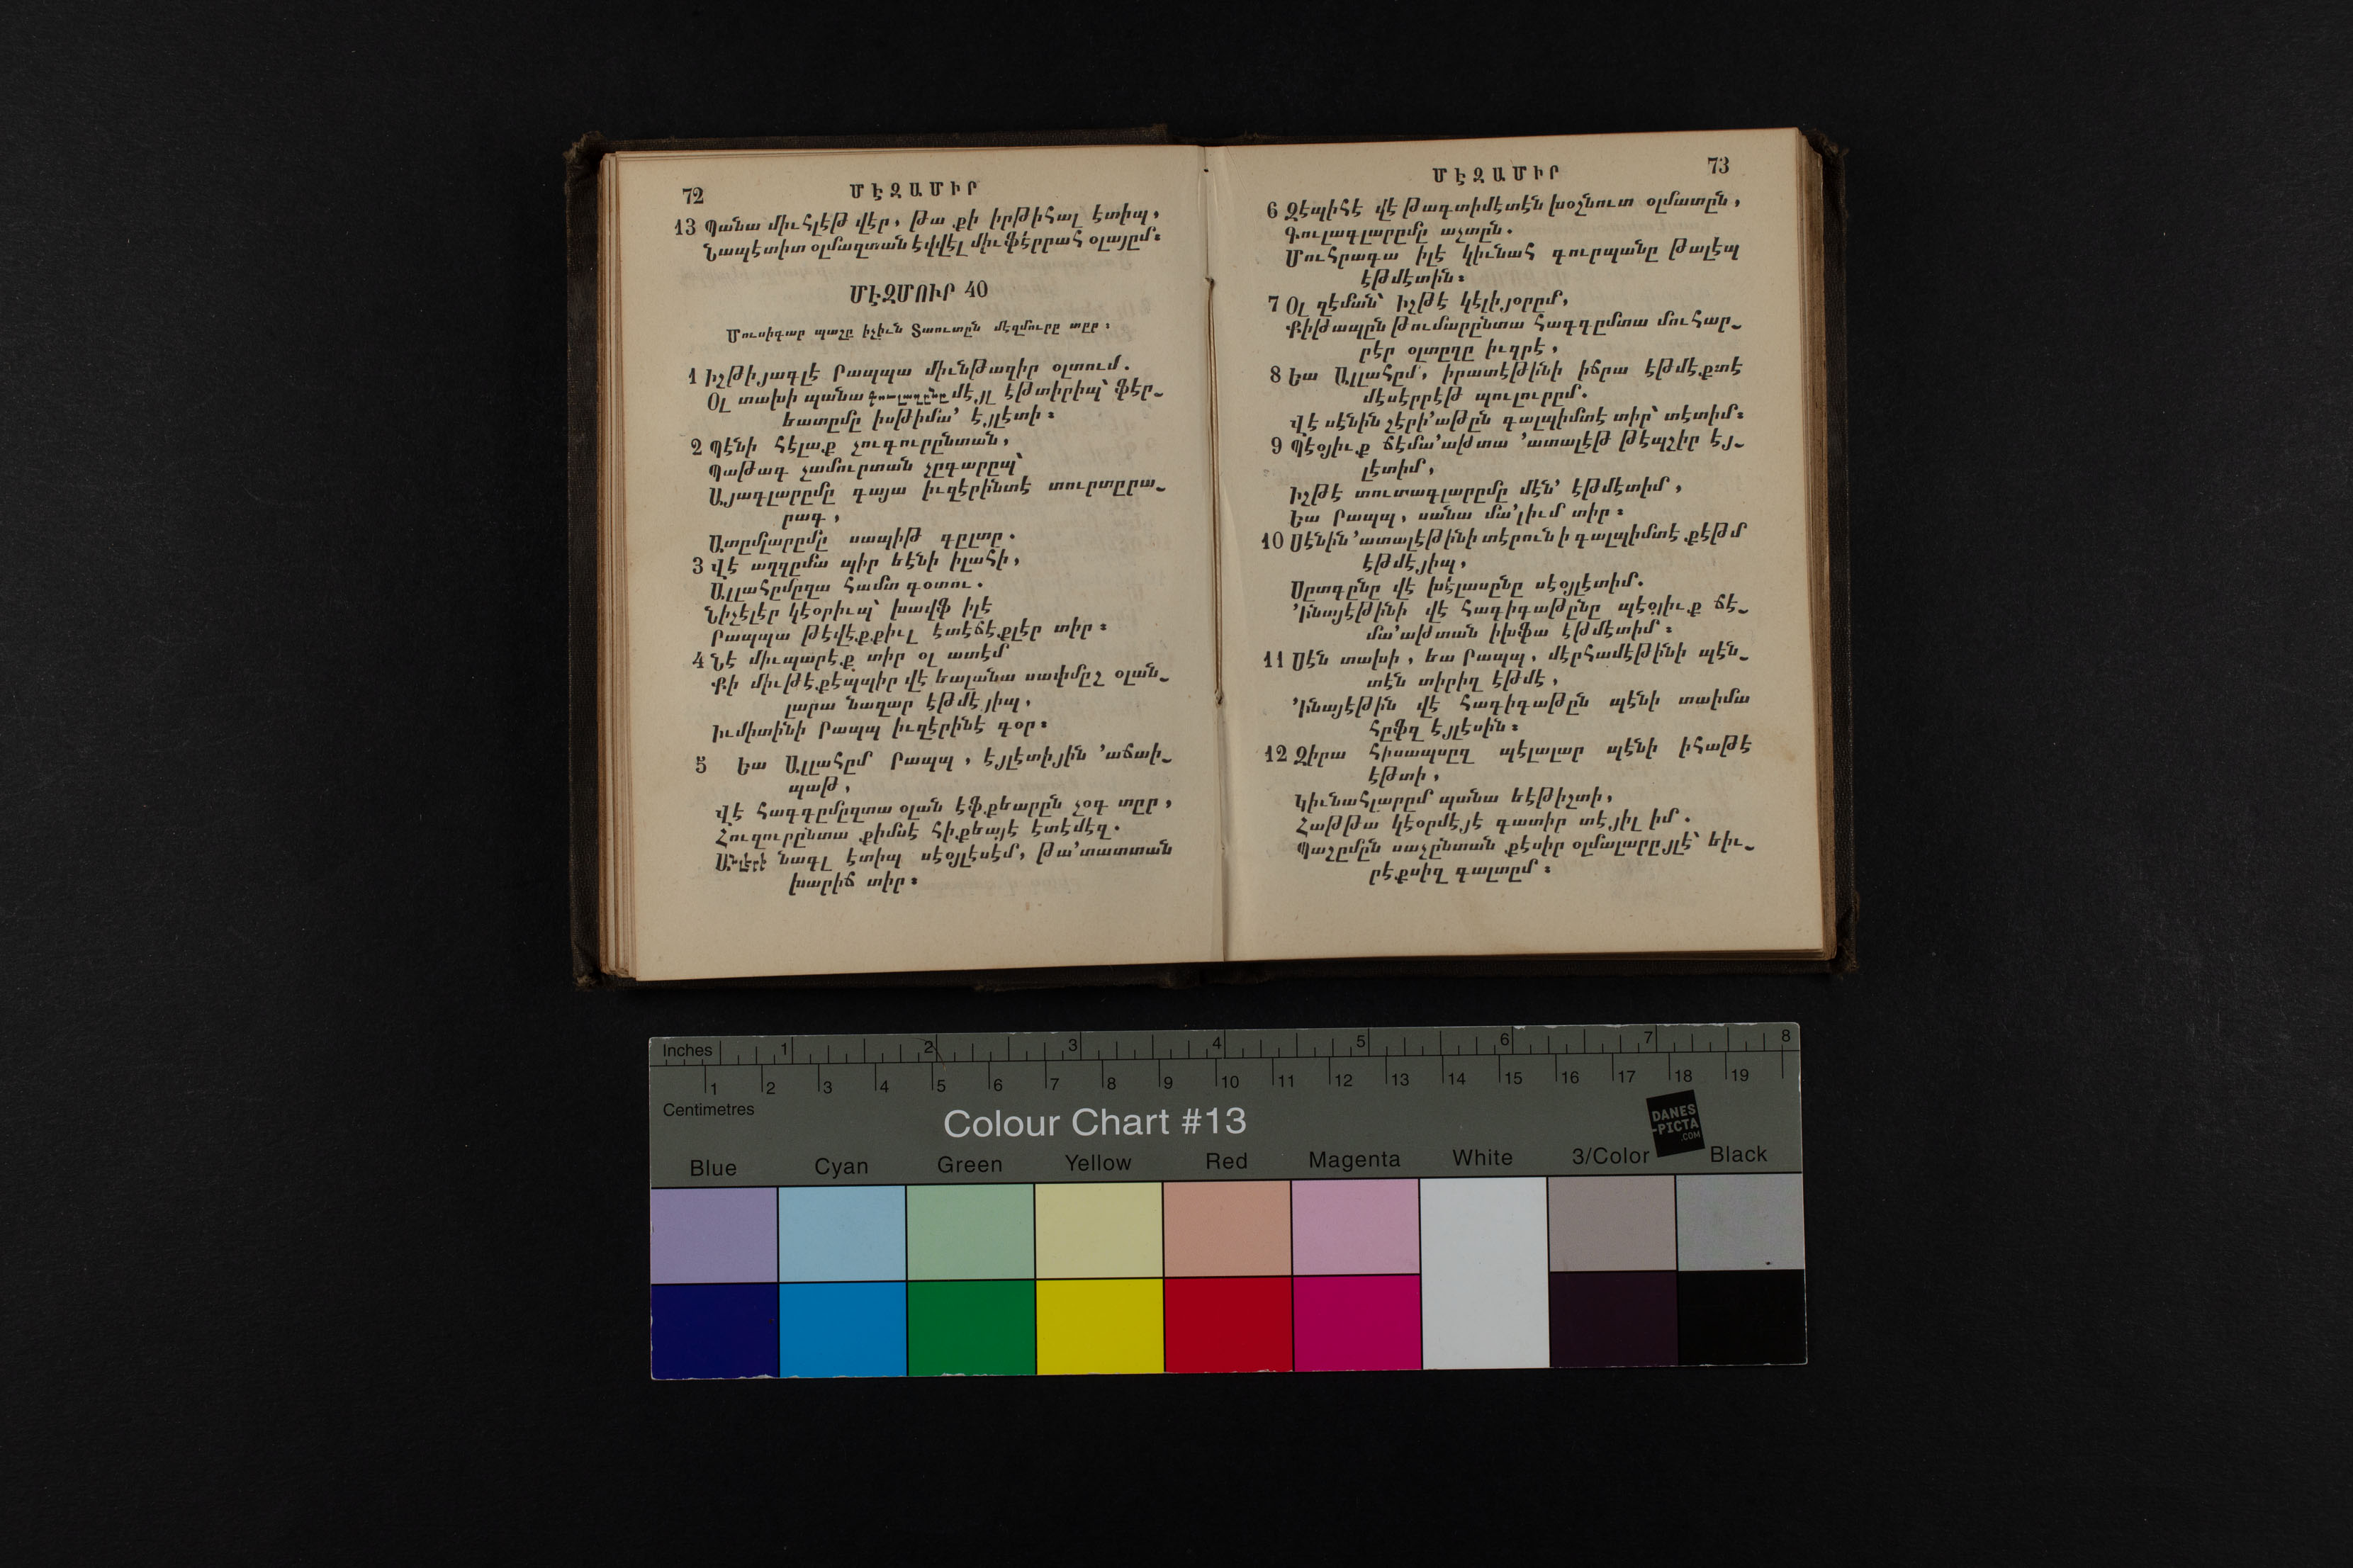 72
ՄԷԶԱՄԻՐ
13 Պանա միւհլէթ վէր, թա քի իրթիհալ էտիպ,
Նապէտիտ օլմազտան էվվէլ միւֆէրրահ օլայըմ։
ՄԷԶՄՈՒՐ 40
Մուսիգար պաշը իչիւն Տաուտըն մէզմուրը տըր։
1 Իշթիյագլէ Րապպա միւնթազիր օլտում.
Օլ տախի պանա գուլաղընը մէյլ էթտիրիպ՝ ֆէր-
եատըմը իսթիմա՛ էյլէտի։
2 Պէնի հէլաք չուգուրընտան,
Պաթագ չամուրտան չըգարըպ՝
Այագլարըմը գայա իւզէրինտէ տուրտըրա-
րագ,
Ատըմլարըմը սապիթ գըլտը.
3 Վէ աղզըմա պիր եէնի իլահի,
Ալլահըմըզա համտ գօտու.
Նիչէլէր կէօրիւպ՝ խավֆ իլէ
Րապպա թէվէքքիւլ էտէճէքլէր տիր։
4 Նէ միւպարէք տիր օլ ատէմ
Քի միւթէքէպպիր վէ եալանա սափմըշ օլան-
լարա նազար էթմէյիպ,
Իւմիտինի Րապպ իւզէրինէ գօր։
5 Եա Ալլահըմ Րապպ, էյլէտիյին ՚աճաի-
պաթ,
Վէ հագգըմըզտա օլան էֆքեարըն չօգ տըր,
Հուզուրընտա քիմսէ հիքեայէ էտէմէզ.
Անլէրի նագլ էտիպ սէօյլէսէմ, թա՛տատտան
խարիճ տիր։
ՄԷԶԱՄԻՐ
73
6 Զէպիհէ վէ թագտիմէտէն խօշնուտ օլմատըն,
Գուլագլարըմը աչտըն.
Մուհրագա իլէ կիւնահ գուրպանը թալէպ
էթմէտին։
7 Օլ զէման՝ Իշթէ կէլիյօրըմ,
Քիթապըն թումարընտա հագգըմտա մուհար-
րէր օլտըղը իւզրէ,
8 Եա Ալլահըմ, իրատէթինի իճրա էթմէքտէ
մէսէրրէթ պուլուրըմ.
Վէ սէնին շէրի՛աթըն գալպիմտէ տիր՝ տէտիմ։
9 Պէօյիւք ճէմա՛աթտա ՚ատալէթ թէպշիր էյ-
լէտիմ,
Իշթէ տուտագլարըմը մէն՛ էթմէտիմ,
Եա Րապպ, սանա մա՛լիւմ տիր։
10 Սէնին ՚ատալէթինի տէրունի գալպիմտէ քէթմ
էթմէյիպ,
Սըտգընը վէ խէլասընը սէօյլէտիմ.
՚Ինայէթինի վէ հագիգաթընը պէօյիւք ճէ-
մա՛աթտան իխֆա էթմէտիմ։
11 Սէն տախի, եա Րապպ, մէրհամէթինի պէն-
տէն տիրիղ էթմէ,
՚Ինայէթին վէ հագիգաթըն պէնի տաիմա
հըֆզ էյլէսին։
12 Զիրա հիսապսըզ պէլալար պէնի իհաթէ
էթտի,
Կիւնահլարըմ պանա եէթիշտի,
Հաթթա կէօրմէյէ գատիր տէյիլ իմ.
Պաշըմըն սաչընտան քէսիր օլմալարըյլէ՝ եիւ-
րէքսիզ գալտըմ։
Inches 1 2 3 4 5 6 7 8
1 2 3 4 5 6 7 8 9 10 11 12 13 14 15 16 17 18 19
Centimetres
Colour Chart #13
DANES
-PICTA
.COM
Blue Cyan Green Yellow Red Magenta White 3/Color Black